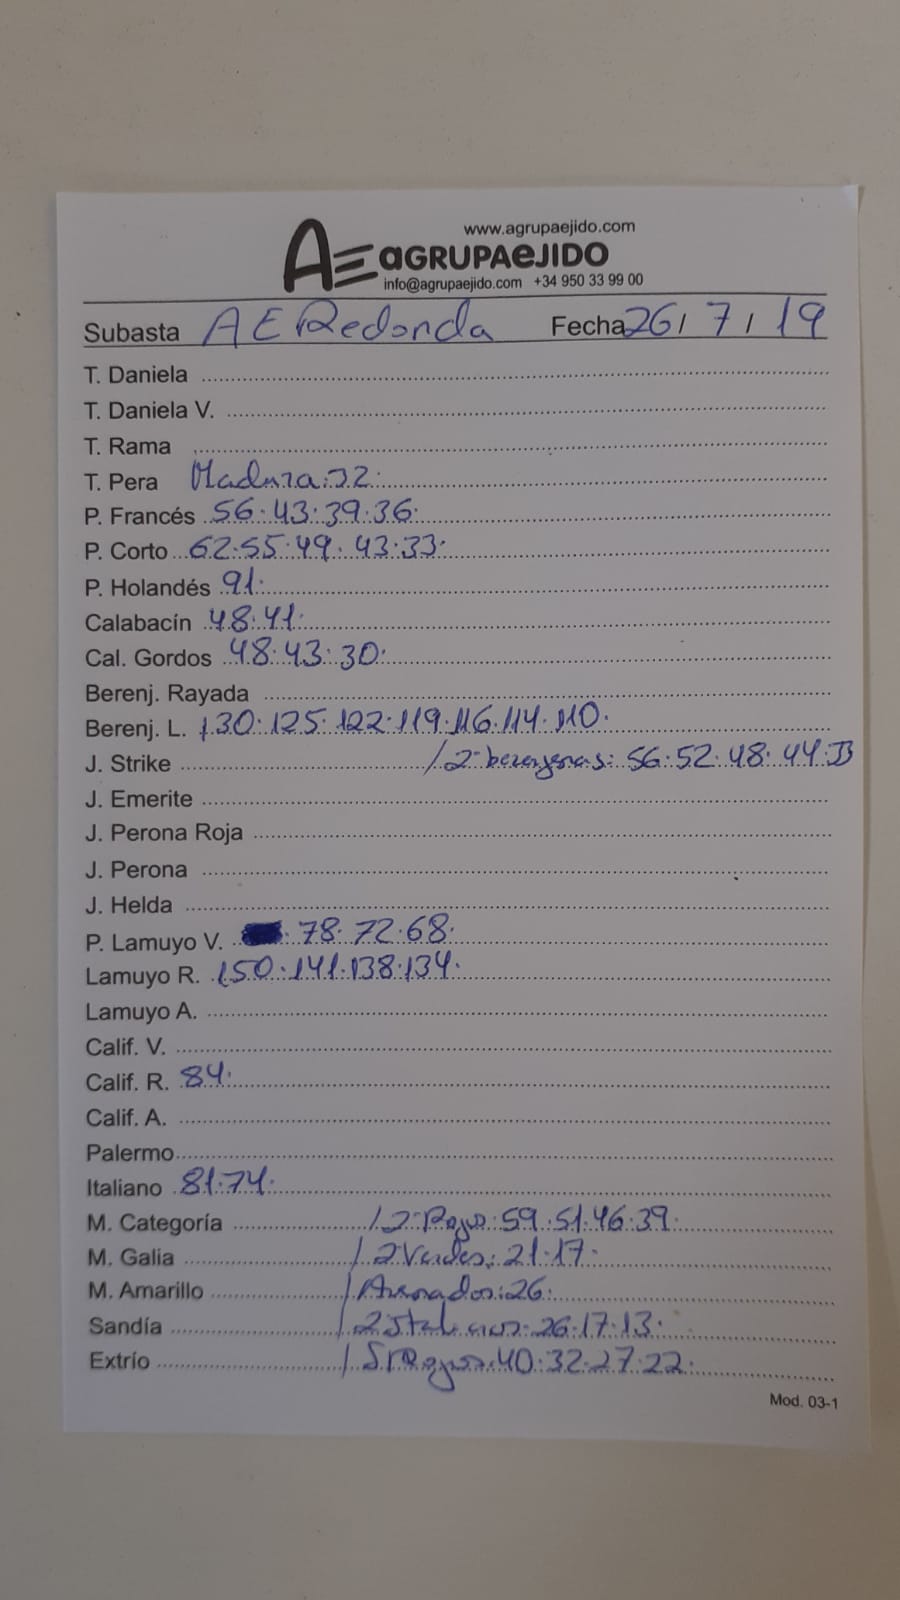 www.agrupaejido.com
AE AGRUPAEJIDO
info@agrupaejido.com +34 950 33 99 00
Subasta AE Redonda Fecha 26/ 7 / 19
T. Daniela
T. Daniela V.
T. Rama
T. Pera Madura:32.
P. Francés 56.43.39.36.
P. Corto 62.55.49.43.33.
P. Holandés 91.
Calabacín 48.41.
Cal. Gordos 48.43.30.
Berenj. Rayada
Berenj. L. 130.125.122.119.116.114.110.
J. Strike /2ª berenjenas: 56.52.48.44.
J. Emerite
J. Perona Roja
J. Perona
J. Helda
P. Lamuyo V. 78.72.68.
Lamuyo R. 150.141.138.134.
Lamuyo A.
Calif. V.
Calif. R. 84.
Calif. A.
Palermo
Italiano 81.74.
M. Categoría /2ª Rojos:59.51.46.39.
M. Galia /2 Verdes:21.17.
M. Amarillo /Asurados:26.
Sandía /2 Italianos:26.17.13.
Extrío /S/Rojos:40.32.27.22.
Mod. 03-1